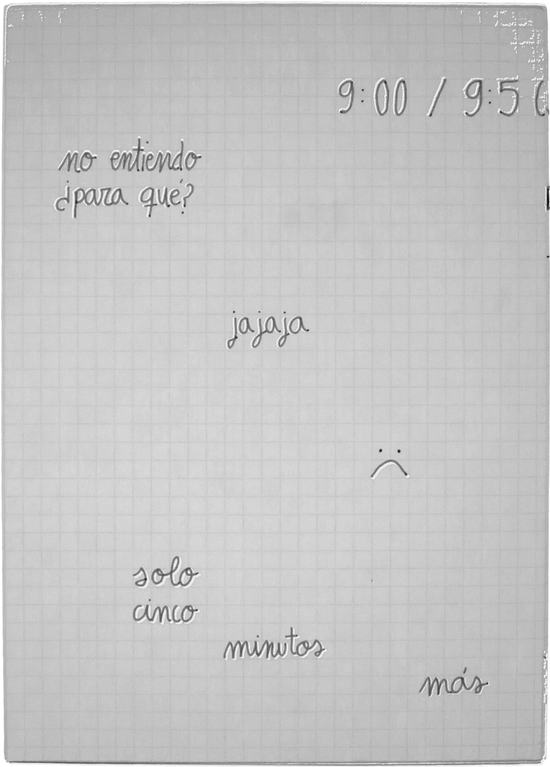 9:00 / 9:50
no entiendo
¿para qué?
jajaja
solo
cinco
minutos
más